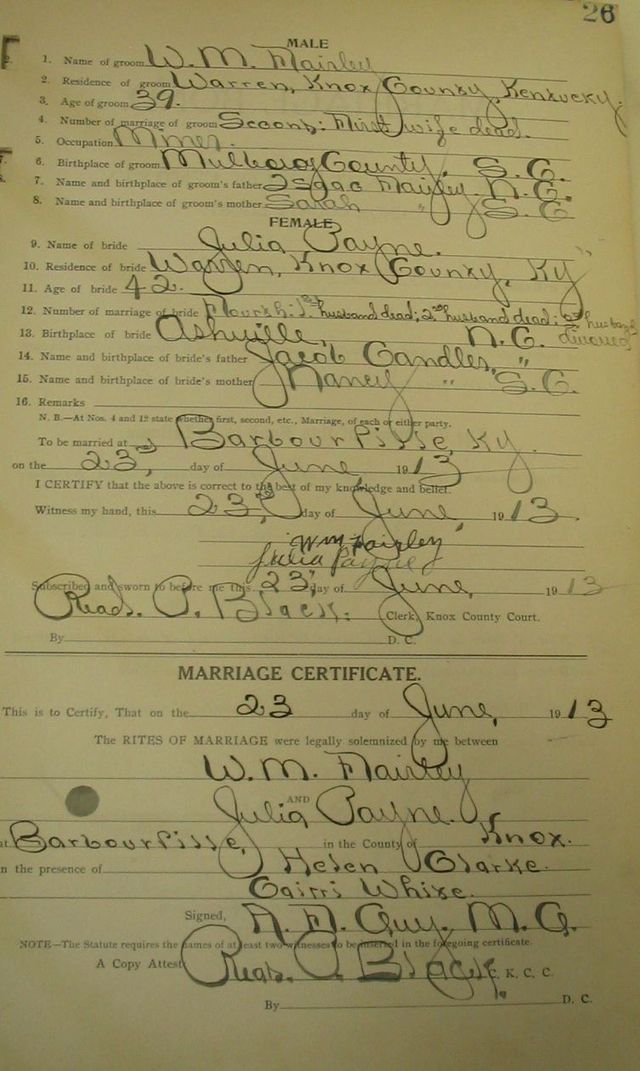 26
MALE
1. Name of groom W. M. Fairley
2. Residence of groom Warren, Knox County, Kentucky.
3. Age of groom 39.
4. Number of marriage of groom Second: First wife dead.
5. Occupation Miner.
6. Birthplace of groom County, S. C.
7. Name and birthplace of groom's father Isaac Fairley N. C.
8. Name and birthplace of groom's mother Sarah " S. C
FEMALE
9. Name of bride Julia Payne.
10. Residence of bride Warren, Knox County, Ky
11. Age of bride 42.
12. Number of marriage of bride 1st husband dead; 2nd husband dead; husband
13. Birthplace of bride Ashville, N. C. divorced
14. Name and birthplace of bride's father Jacob Candler, "
15. Name and birthplace of bride's mother Nancy " S. C.
16. Remarks
N. B.—At Nos. 4 and 12 state whether first, second, etc., Marriage, of each or either party.
To be married at Barbourville, Ky.
on the 23, day of June 1913
I CERTIFY that the above is correct to the best of my knowledge and belief.
Witness my hand, this 23, day of June, 1913.
Wm Fairley
Julia Payne
Subscribed and sworn to before me this 23, day of June, 1913
Read. P. Black. Clerk, Knox County Court.
By D. C.
MARRIAGE CERTIFICATE.
This is to Certify, That on the 23 day of June, 1913
The RITES OF MARRIAGE were legally solemnized by me between
W. M. Fairley
AND
Julia Payne.
at Barbourville, in the County of Knox.
in the presence of Helen Clarke.
White.
Signed, Guy. M. G.
NOTE—The Statute requires the names of at least two witnesses to be inserted in the foregoing certificate.
A Copy Attest Read. P. Black. C. K. C. C.
By D. C.